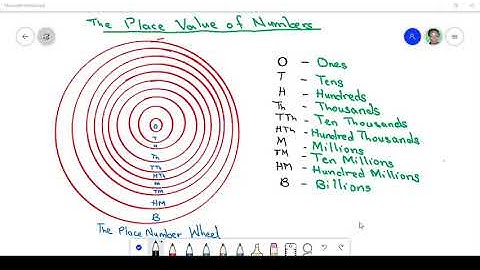 The Place Value of Numbers
O - Ones
T - Tens
H - Hundreds
Th - Thousands
TTh - Ten Thousands
HTh - Hundred Thousands
M - Millions
TM - Ten Millions
HM - Hundred Millions
B - Billions
O
T
H
Th
TTh
HTh
M
TM
HM
B
The Place Number Wheel